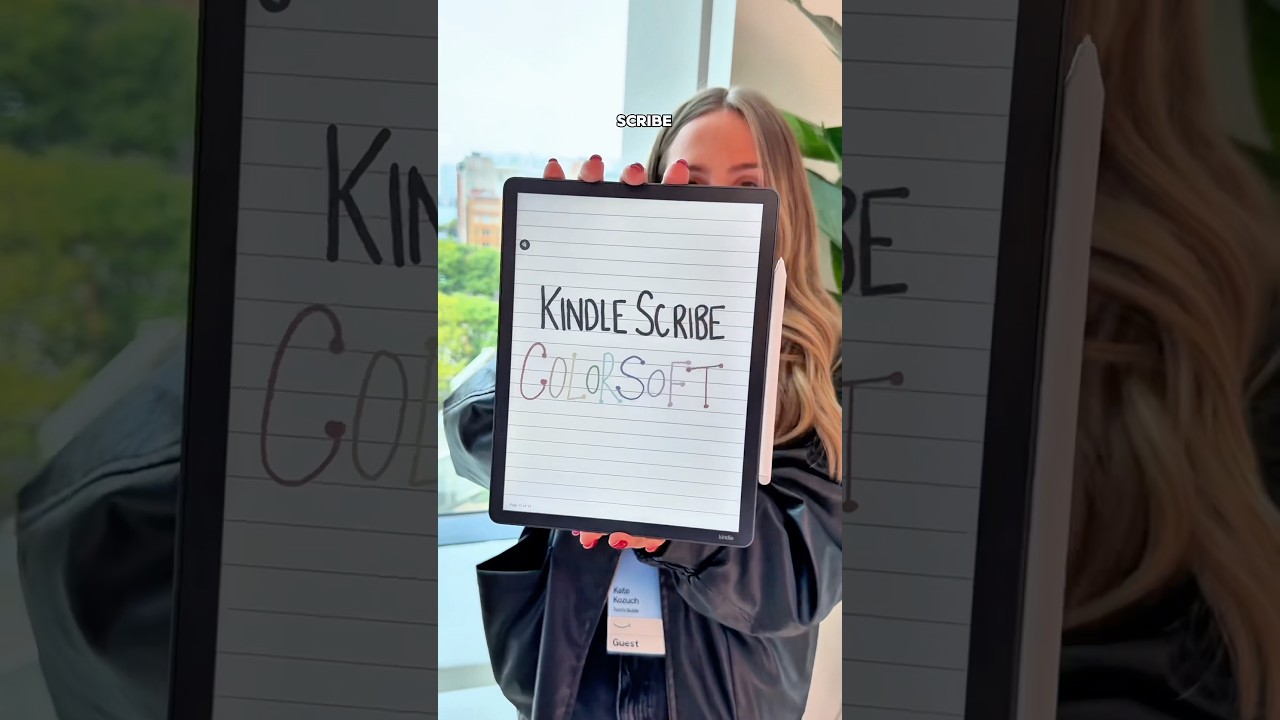 SCRIBE
KINDLE SCRIBE
COLORSOFT
kindle
Kate
Kozuch
Tom's Guide
Guest